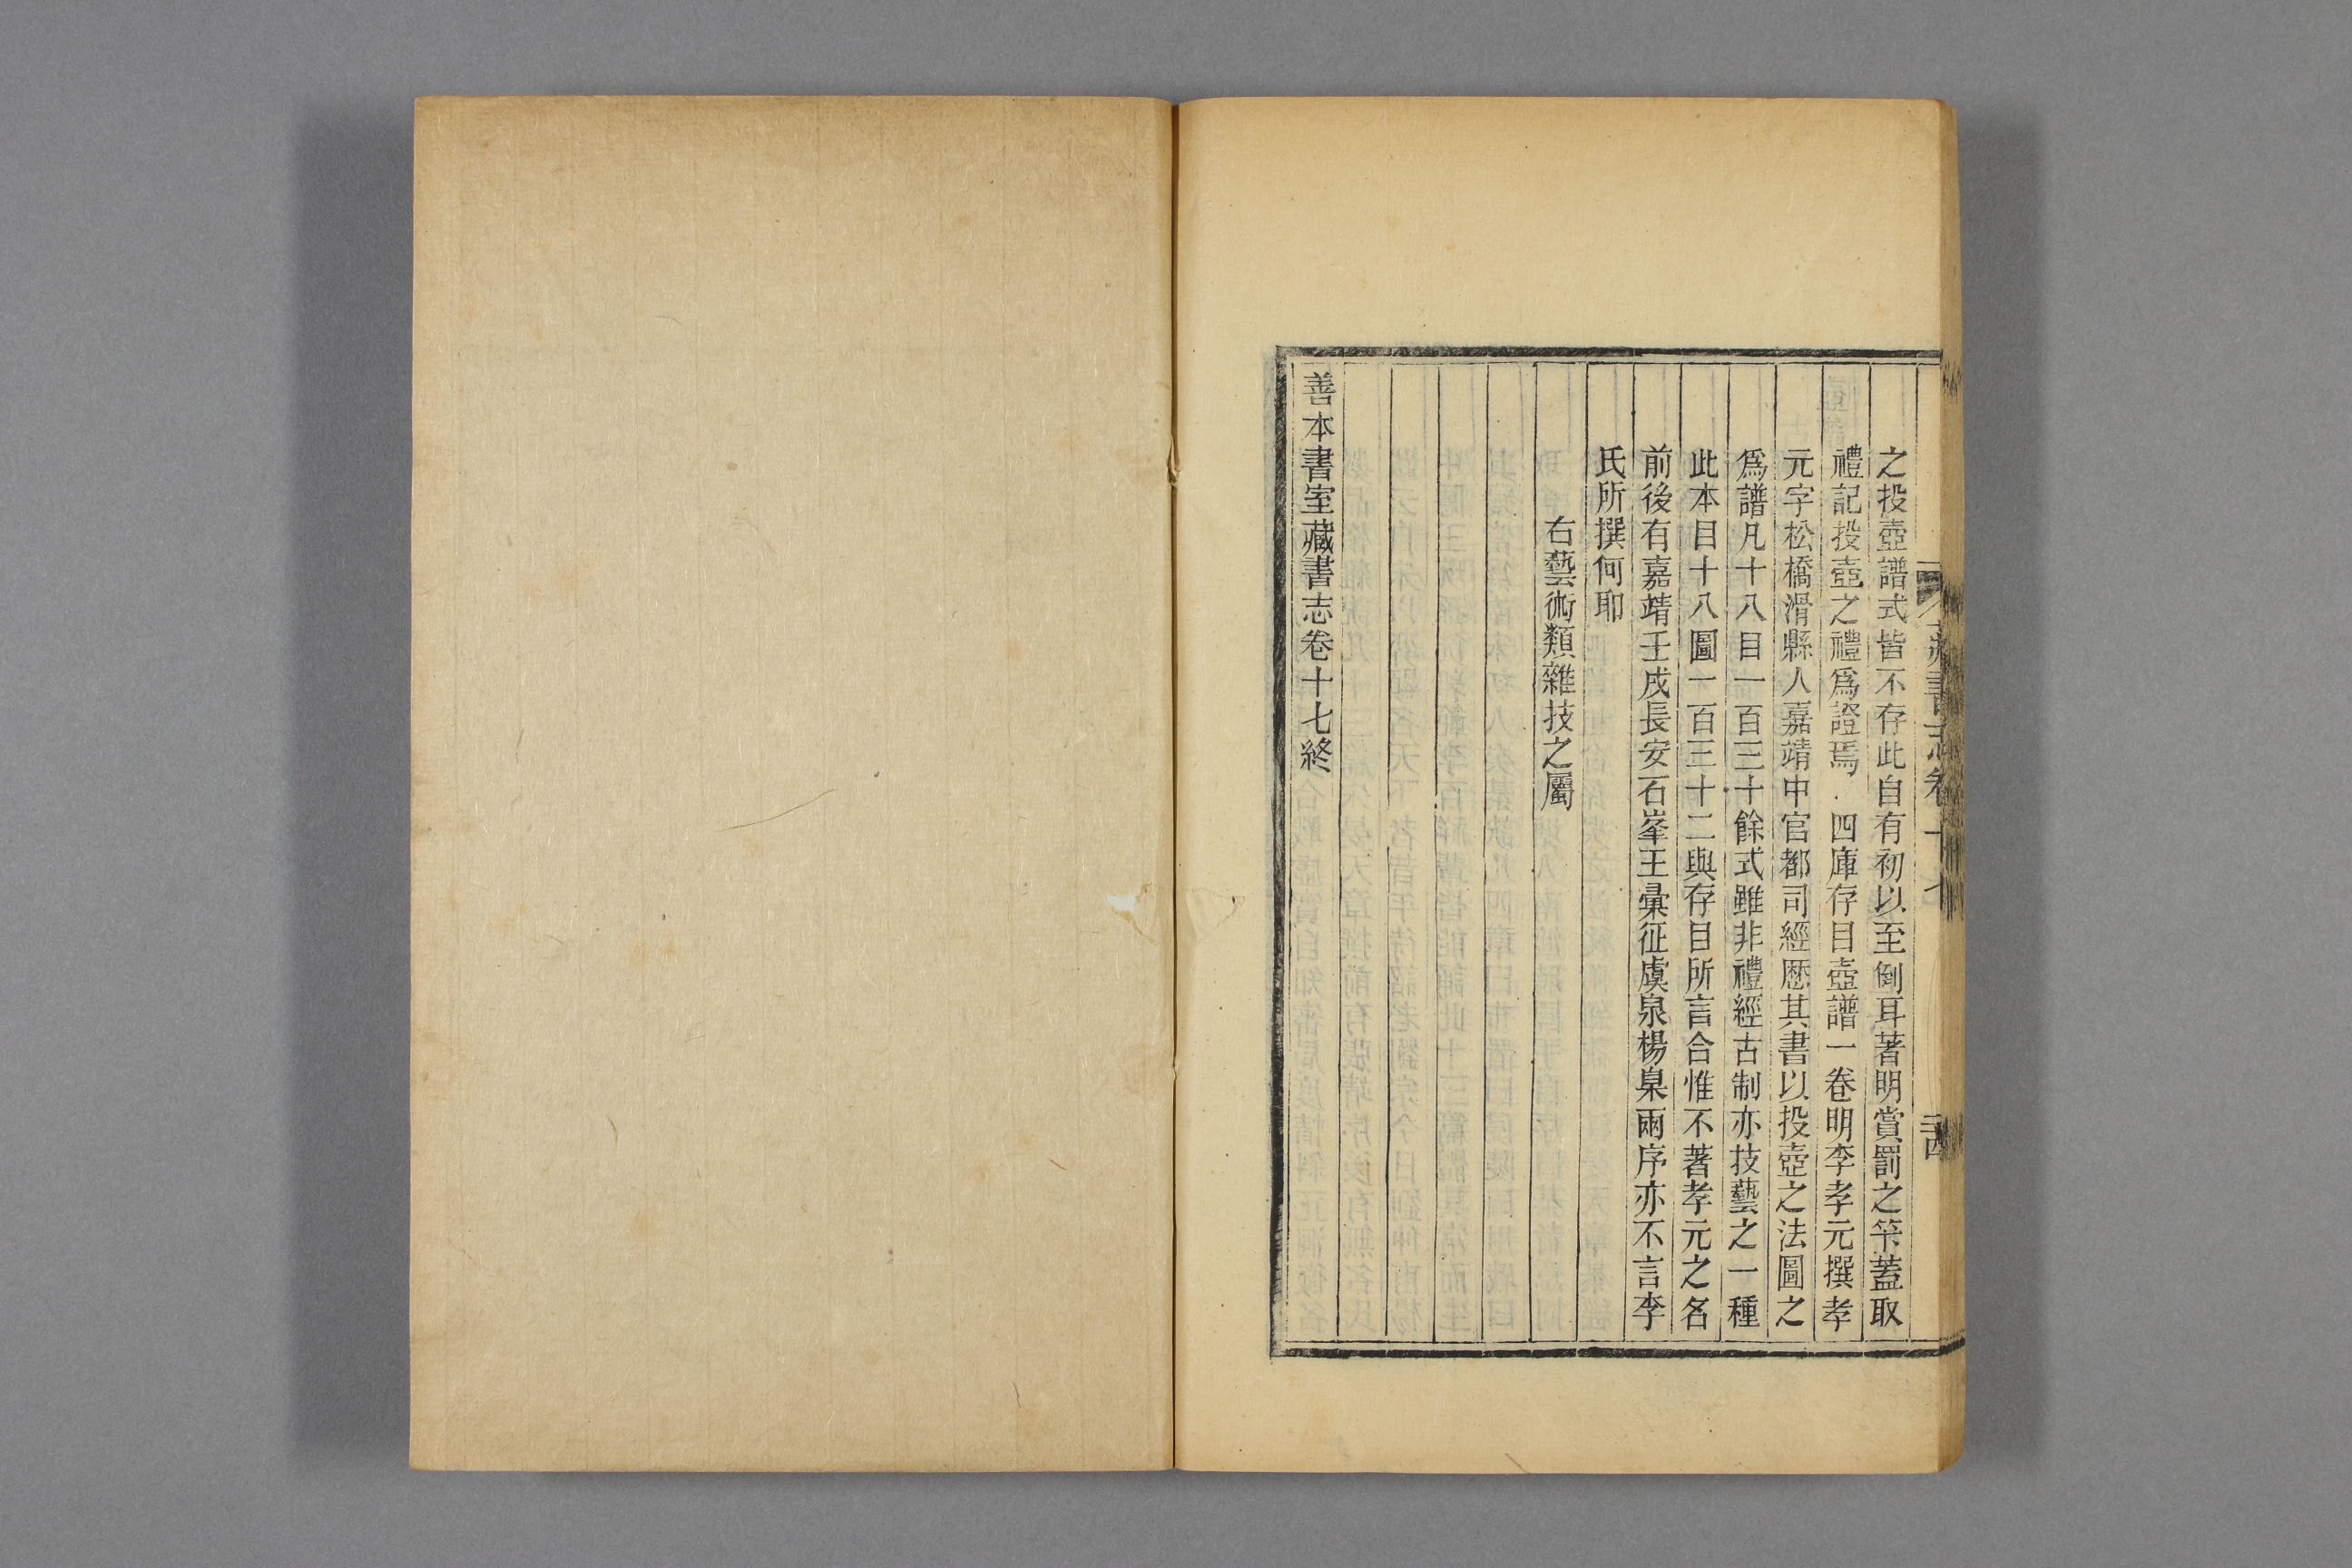 之投壺譜式皆不存此自有初以至倒耳著明賞罰之筞蓋取
禮記投壺之禮爲證焉 四庫存目壺譜一卷明李孝元撰孝
元字松橋滑縣人嘉靖中官都司經歷其書以投壺之法圖之
爲譜凡十八目一百三十餘式雖非禮經古制亦技藝之一種
此本目十八圖一百三十二與存目所言合惟不著孝元之名
前後有嘉靖壬戌長安石峯王彙征虞泉楊臬兩序亦不言李
氏所撰何耶
右藝術類雜技之屬
善本書室藏書志卷十七終
藏書志卷十七